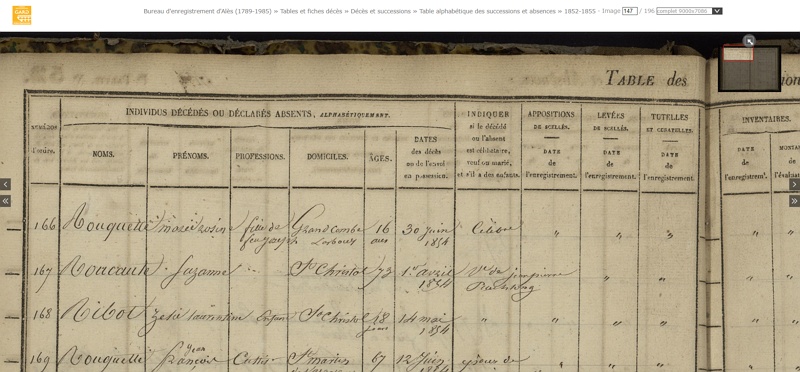 GARD
Bureau d'enregistrement d'Alès (1789-1985) » Tables et fiches décès » Décès et successions » Table alphabétique des successions et absences » 1852-1855 - Image 147 / 196 complet 9000x7086
TABLE des
INDIVIDUS DÉCÉDÉS OU DÉCLARÉS ABSENTS, ALPHABÉTIQUEMENT.
NUMÉROS d'ordre.
NOMS.
PRÉNOMS.
PROFESSIONS.
DOMICILES.
AGES.
DATES
des décès
ou de l'envoi
en possession.
INDIQUER
si le décédé
ou l'absent
est célibataire,
veuf ou marié,
et s'il a des enfants.
APPOSITIONS
DE SCELLÉS.
DATE
de
l'enregistrement.
LEVÉES
DE SCELLÉS.
DATE
de
l'enregistrement.
TUTELLES
ET CURATELLES.
DATE
de
l'enregistrement.
INVENTAIRES.
DATE
de
l'enregistrem.
166 Rouquette marie rosine fille de Grand'combe 16 ans 30 juin 1854 Célibre " " "
167 Roucaute Suzanne St Christol 73 1er avril 1854 Ve de jean pierre " "
168 Ribot Zélie laurentine Enfant St Christol 18 jours 14 mai 1854 " " "
169 Rouquette jean françois Cultiv St martin 67 12 juin 1854 époux de " " "